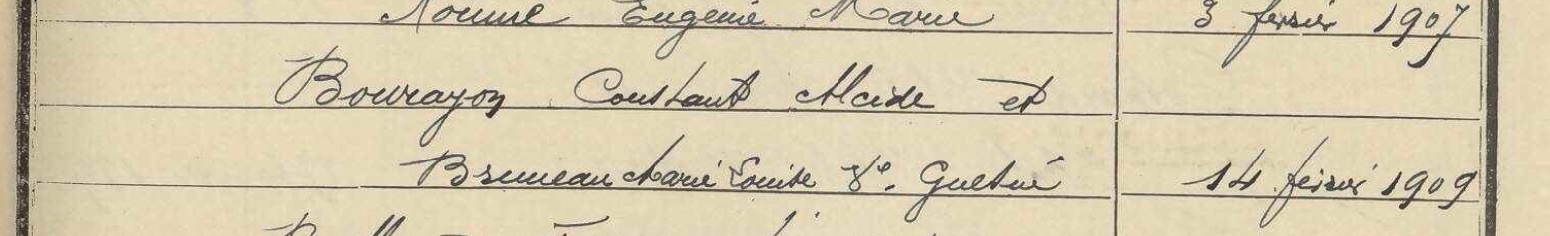 Eugénie Marie 3 février 1907
Bourayon Constant Alcide et
Bruneau Marie Louise Ve. Guetté 14 février 1909